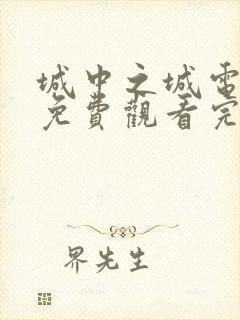 城中之城電
免費觀看完
界先生